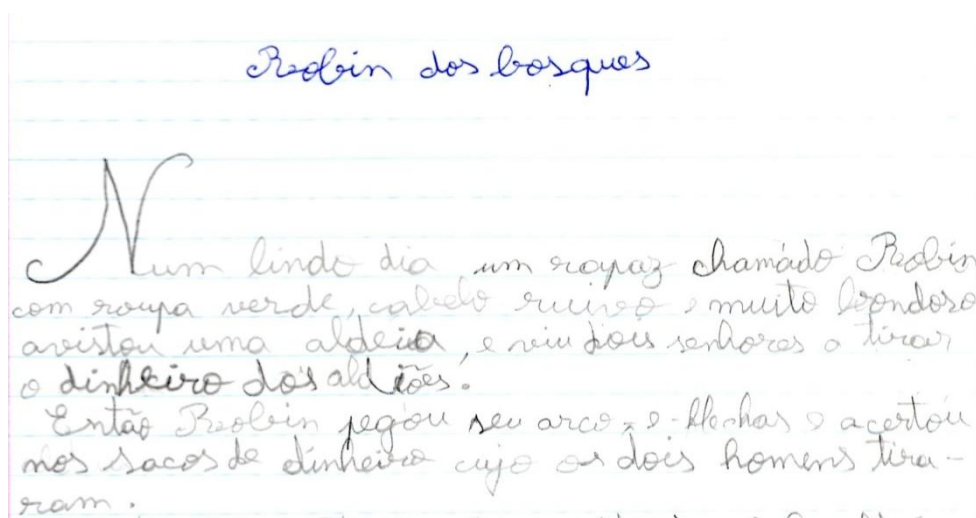 Robin dos bosques
Num lindo dia, um rapaz chamádo Robin
com roupa verde, cabelo ruivo e muito bondoso
avistou uma aldeia, e viu dois senhores a tirar
o dinheiro dos aldiões.
Então Robin pegou seu arco, e flechas e acertou
nos sacos de dinheiro cujo os dois homens tira-
ram.